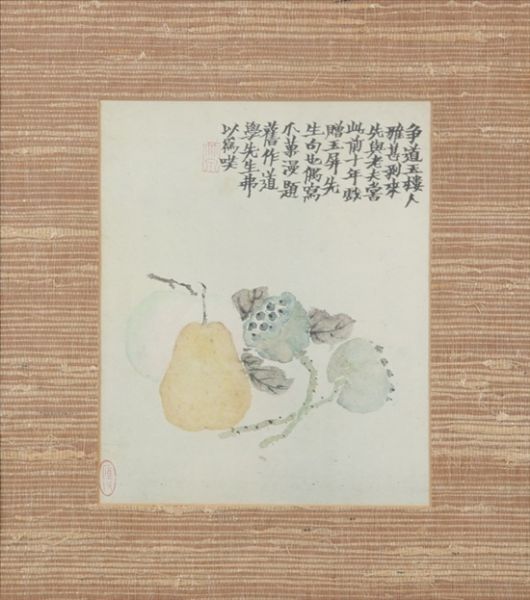 争道玉樓人
雅甚剥來
先與老夫嘗
此前十年戲
贈玉屏先
生句也偶寫
瓜菓漫題
舊作道
學先生弗
以為咲